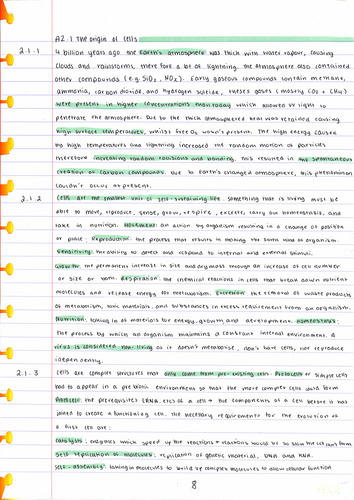 A2.1 The origin of cells
2.1.1
4 billion years ago the Earth's atmosphere was thick with water vapour, causing
clouds and rainstorms, therefore a lot of lightning. The atmosphere also contained
other compounds (e.g. SiO2, NOx). Early gaseous compounds contain methane,
ammonia, carbon dioxide, and hydrogen sulfide, these gases (mostly CO2 + CH4)
were present in higher concentrations than today which allowed UV light to
penetrate the atmosphere. Due to the thick atmosphere heat was retained causing
high surface temperatures, whilst free O2 wasn't present. The high energy caused
by high temperatures and lightning increased the random motion of particles
therefore increasing random collisions and bonding. This resulted in the spontaneous
creation of carbon compounds. Due to Earth's changed atmosphere, this phenomenon
couldn't occur at present.
2.1.2
Cells are the smallest unit of self-sustaining life. Something that is living must be
able to move, reproduce, sense, grow, respire, excrete, carry out homeostasis, and
take in nutrition. Movement: an action by organism resulting in a change of position
or place. Reproduction: the process that results in making the same kind of organism.
Sensitivity: the ability to detect and respond to internal and external stimuli.
Growth: the permanent increase in size and dry mass through an increase of cell number
or size or both. Respiration: the chemical reactions in cells that break down nutrient
molecules and release energy for metabolism. Excretion: the removal of waste products
of metabolism, toxic materials, and substances in excess requirement from an organism.
Nutrition: taking in of materials for energy, growth and development. Homeostasis:
the process by which an organism maintains a constant internal environment. A
virus is considered non-living as it doesn't metabolise, don't have cells, nor reproduce
independently.
2.1.3
Cells are complex structures that only come from pre-existing cells. Protocells or simple cells
had to appear in a pre biotic environment so that the more complex cells could form
Protocell: the prerequisites (RNA, etc) of a cell + the components of a cell before it was
joined to create a functioning cell. The necessary requirements for the evolution of
a first cell are:
catalysis: enzymes which speed up the reactions + reactions would be so slow the cell can't form
self replication of molecules: replication of genetic material, DNA and RNA.
self-assembly: taking in molecules to build up complex molecules to allow cellular function
8